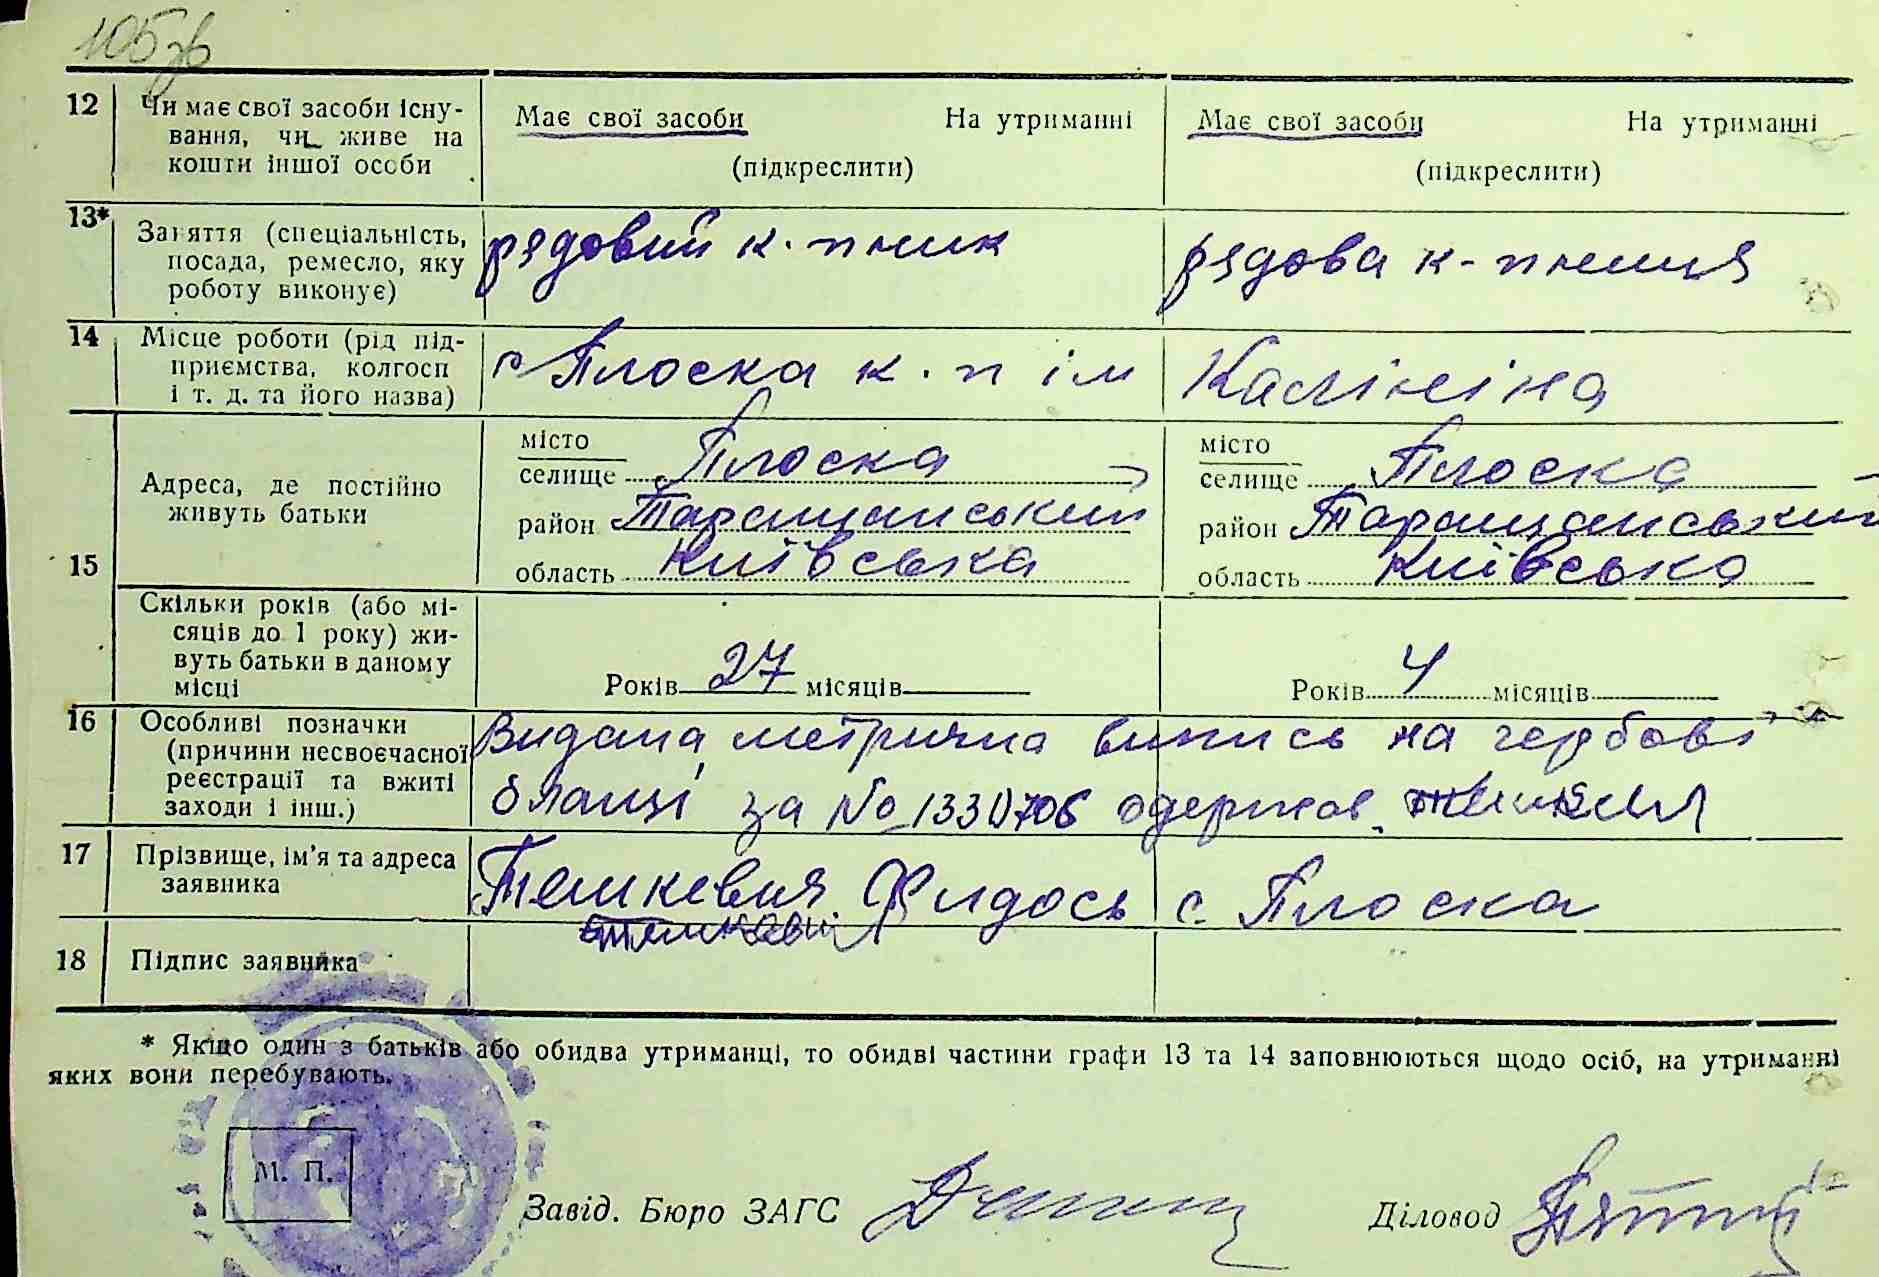 105 зв
12 Чи має свої засоби існу-
вання, чи живе на
кошти іншої особи
Має свої засоби На утриманні
(підкреслити)
Має свої засоби На утриманні
(підкреслити)
13* Заняття (спеціальність,
посада, ремесло, яку
роботу виконує)
рядовий к-пник
рядова к-пниця
14 Місце роботи (рід під-
приємства, колгосп
і т. д. та його назва)
с Плоска к-п ім Калініна
15 Адреса, де постійно
живуть батьки
місто
селище Плоска
район Таращанський
область Київська
місто
селище Плоска
район Таращанський
область Київська
Скільки років (або мі-
сяців до 1 року) жи-
вуть батьки в даному
місці
Років 27 місяців
Років 4 місяців
16 Особливі позначки
(причини несвоєчасної
реєстрації та вжиті
заходи і інш.)
Видана метрична випись на гербові
бланці за No 1330706 одержав
17 Прізвище, ім'я та адреса
заявника
Тешкевич Фидось с. Плоска
18 Підпис заявника
* Якщо один з батьків або обидва утриманці, то обидві частини графи 13 та 14 заповнюються щодо осіб, на утриманні
яких вони перебувають.
М. П.
Завід. Бюро ЗАГС
Діловод